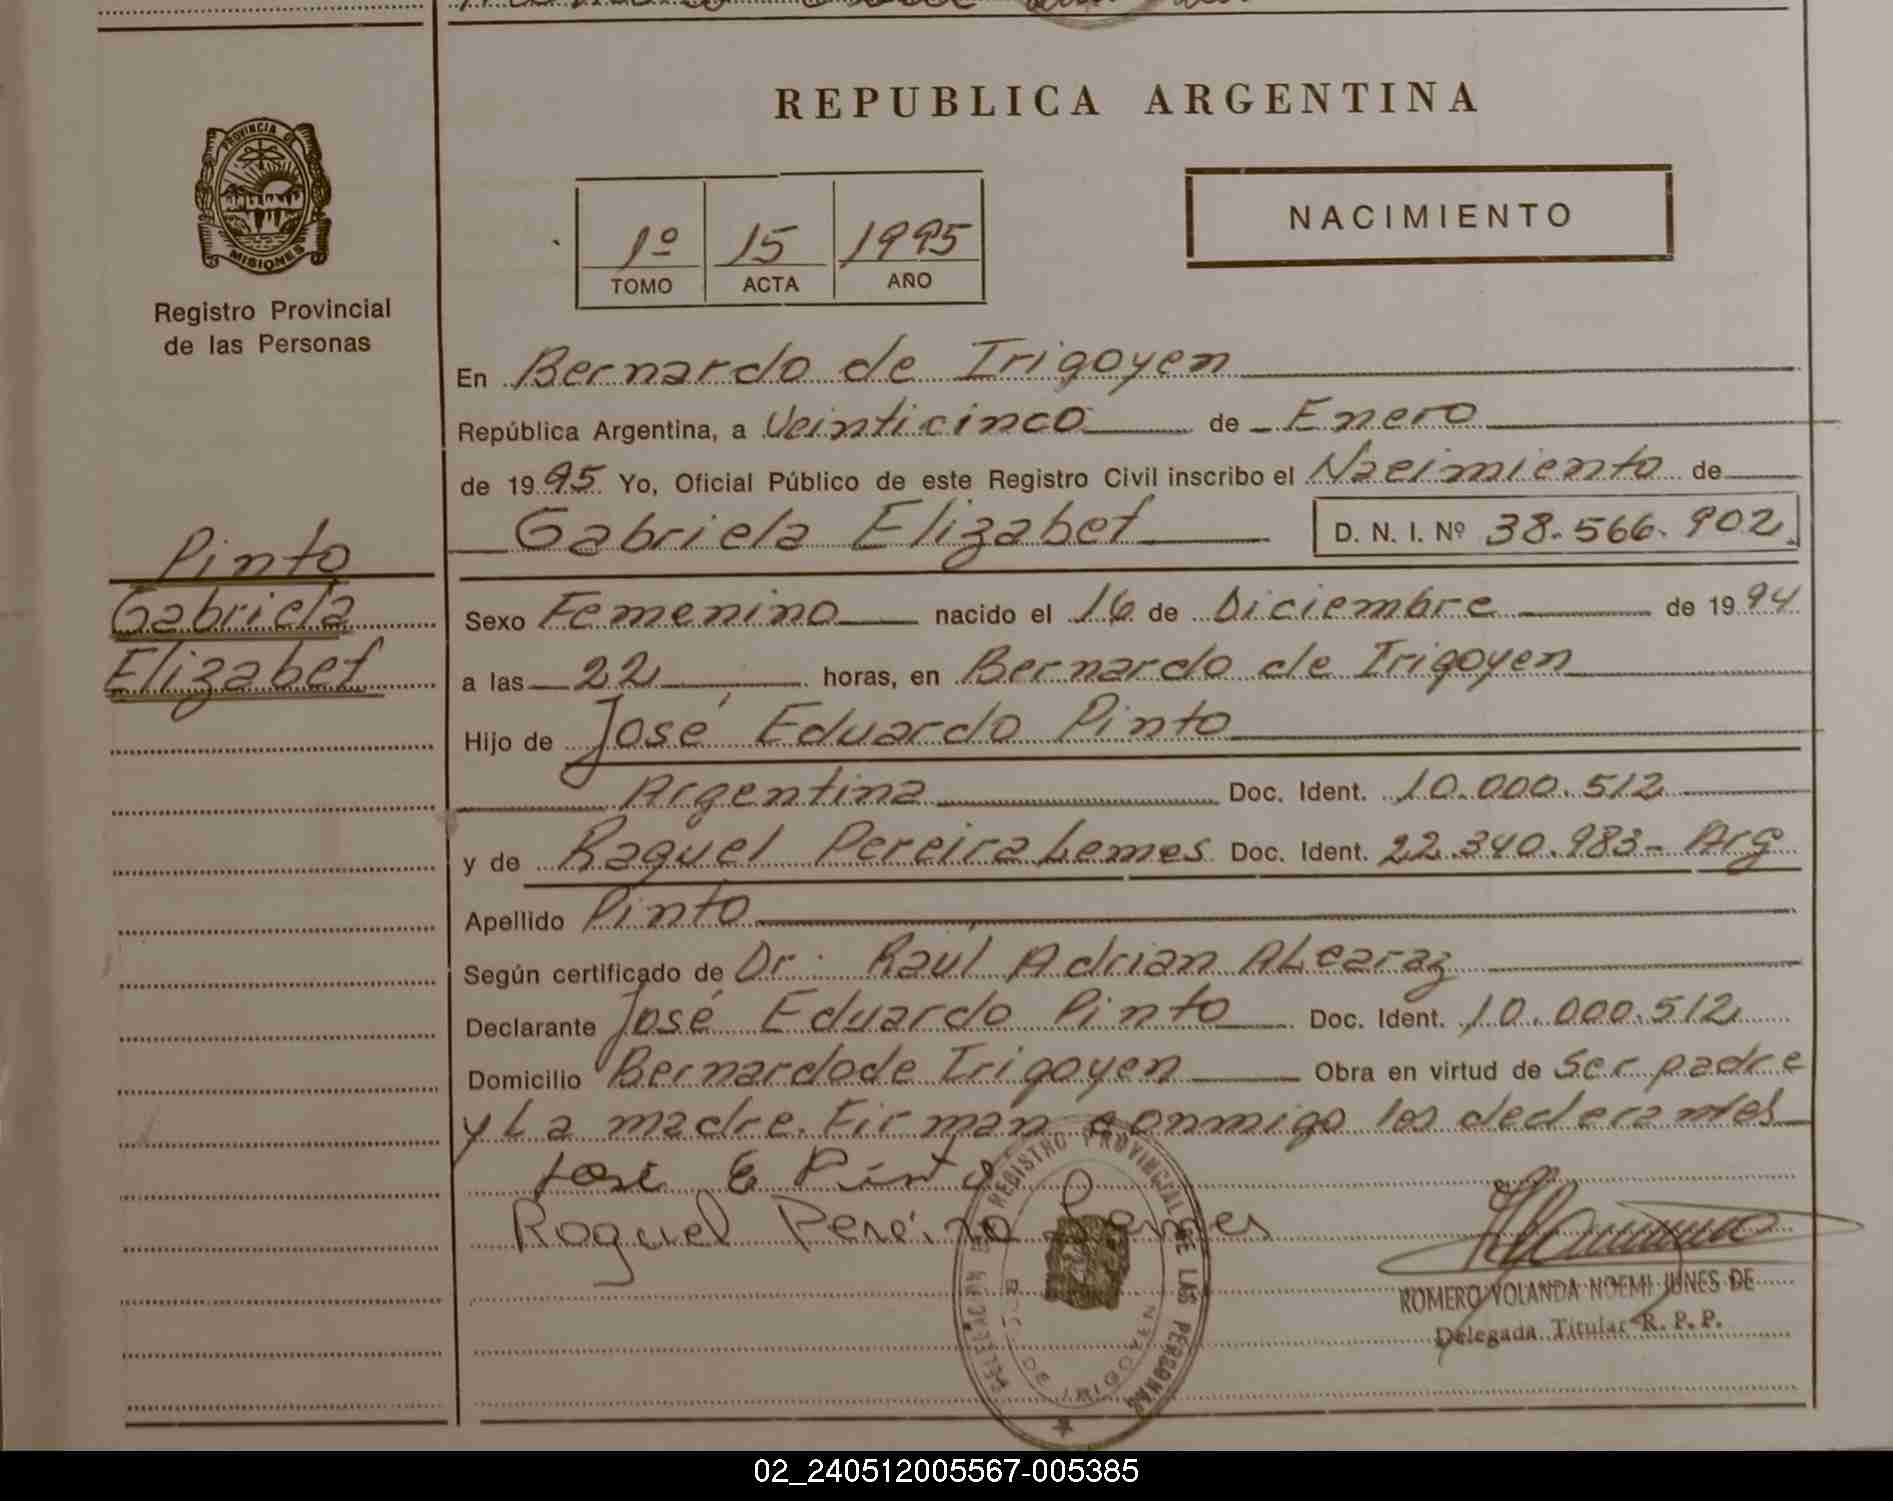 REPUBLICA ARGENTINA
PROVINCIA DE
MISIONES
Registro Provincial
de las Personas
1º 15 1995
TOMO ACTA AÑO
NACIMIENTO
En Bernardo de Irigoyen
República Argentina, a Veinticinco de Enero
de 1995 Yo, Oficial Público de este Registro Civil inscribo el Nacimiento de
Gabriela Elizabet D. N. I. Nº 38.566.902
Pinto
Gabriela
Elizabet
Sexo Femenino nacido el 16 de Diciembre de 1994
a las 22 horas, en Bernardo de Irigoyen
Hijo de José Eduardo Pinto
Argentina Doc. Ident. 10.000.512
y de Raquel Pereira Lemes Doc. Ident. 22.340.983- Arg
Apellido Pinto
Según certificado de Dr. Raúl Adrian ALcaraz
Declarante José Eduardo Pinto Doc. Ident. 10.000.512
Domicilio Bernardo de Irigoyen Obra en virtud de Ser padre
y La madre. Firman conmigo los declarantes
José E Pinto
Raquel Pereira Lemes
DELEGACION DEL REGISTRO PROVINCIAL DE LAS PERSONAS
BDO. DE IRIGOYEN
ROMERO YOLANDA NOEMI JUNES DE
Delegada Titular R. P. P.
02_240512005567-005385